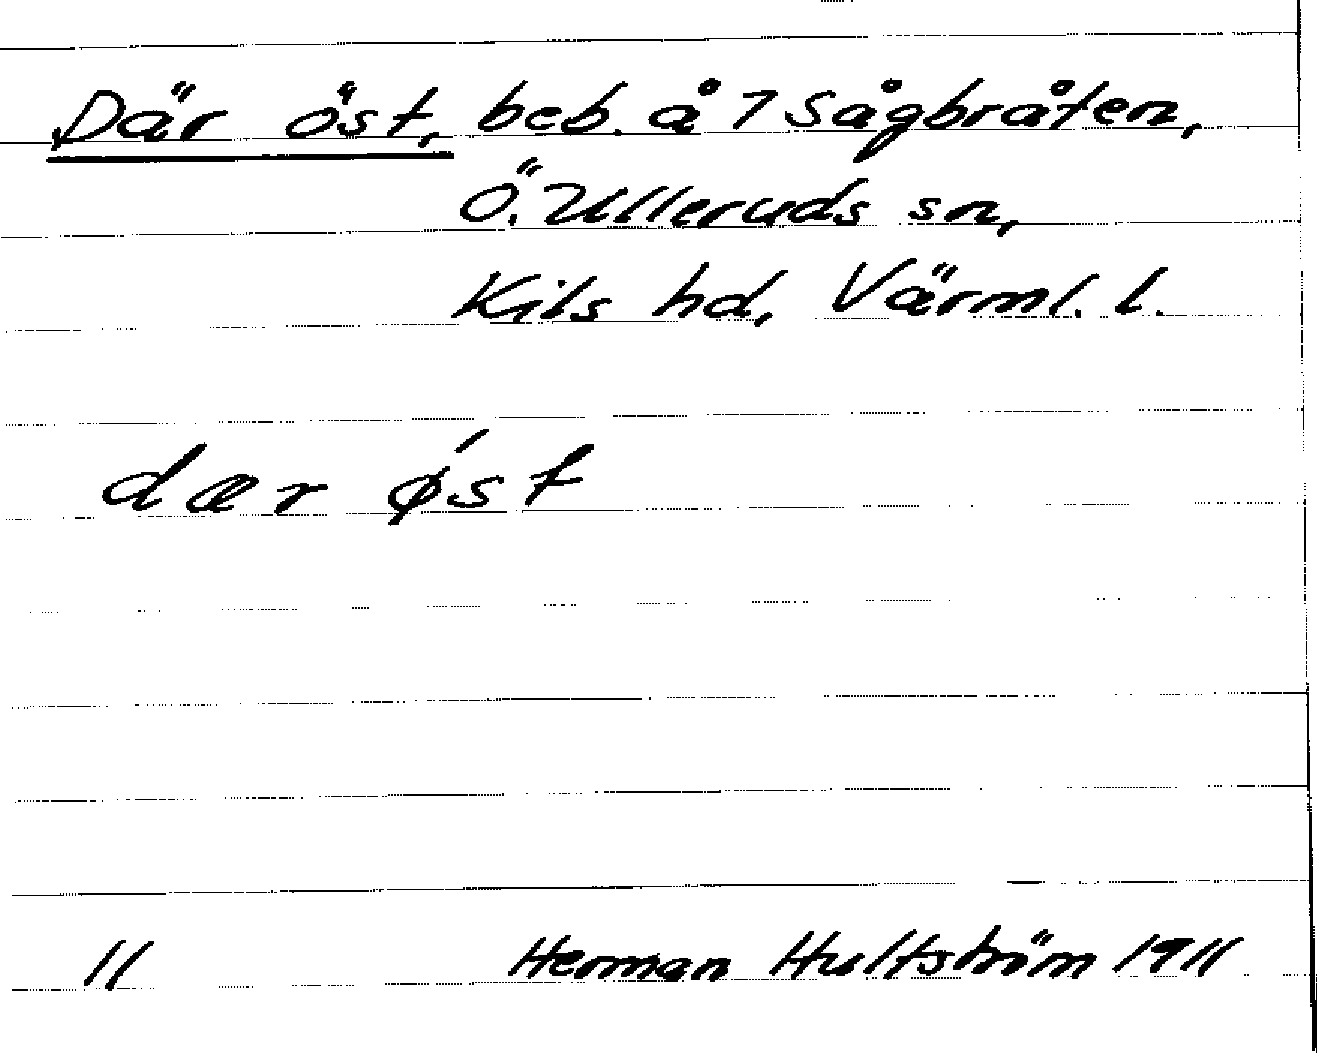 Där öst, beb. å 7 Sågbråten,
Ö. Ulleruds sn,
Kils hd, Värml. l.
dær ǿst
11 Herman Hultström 1911